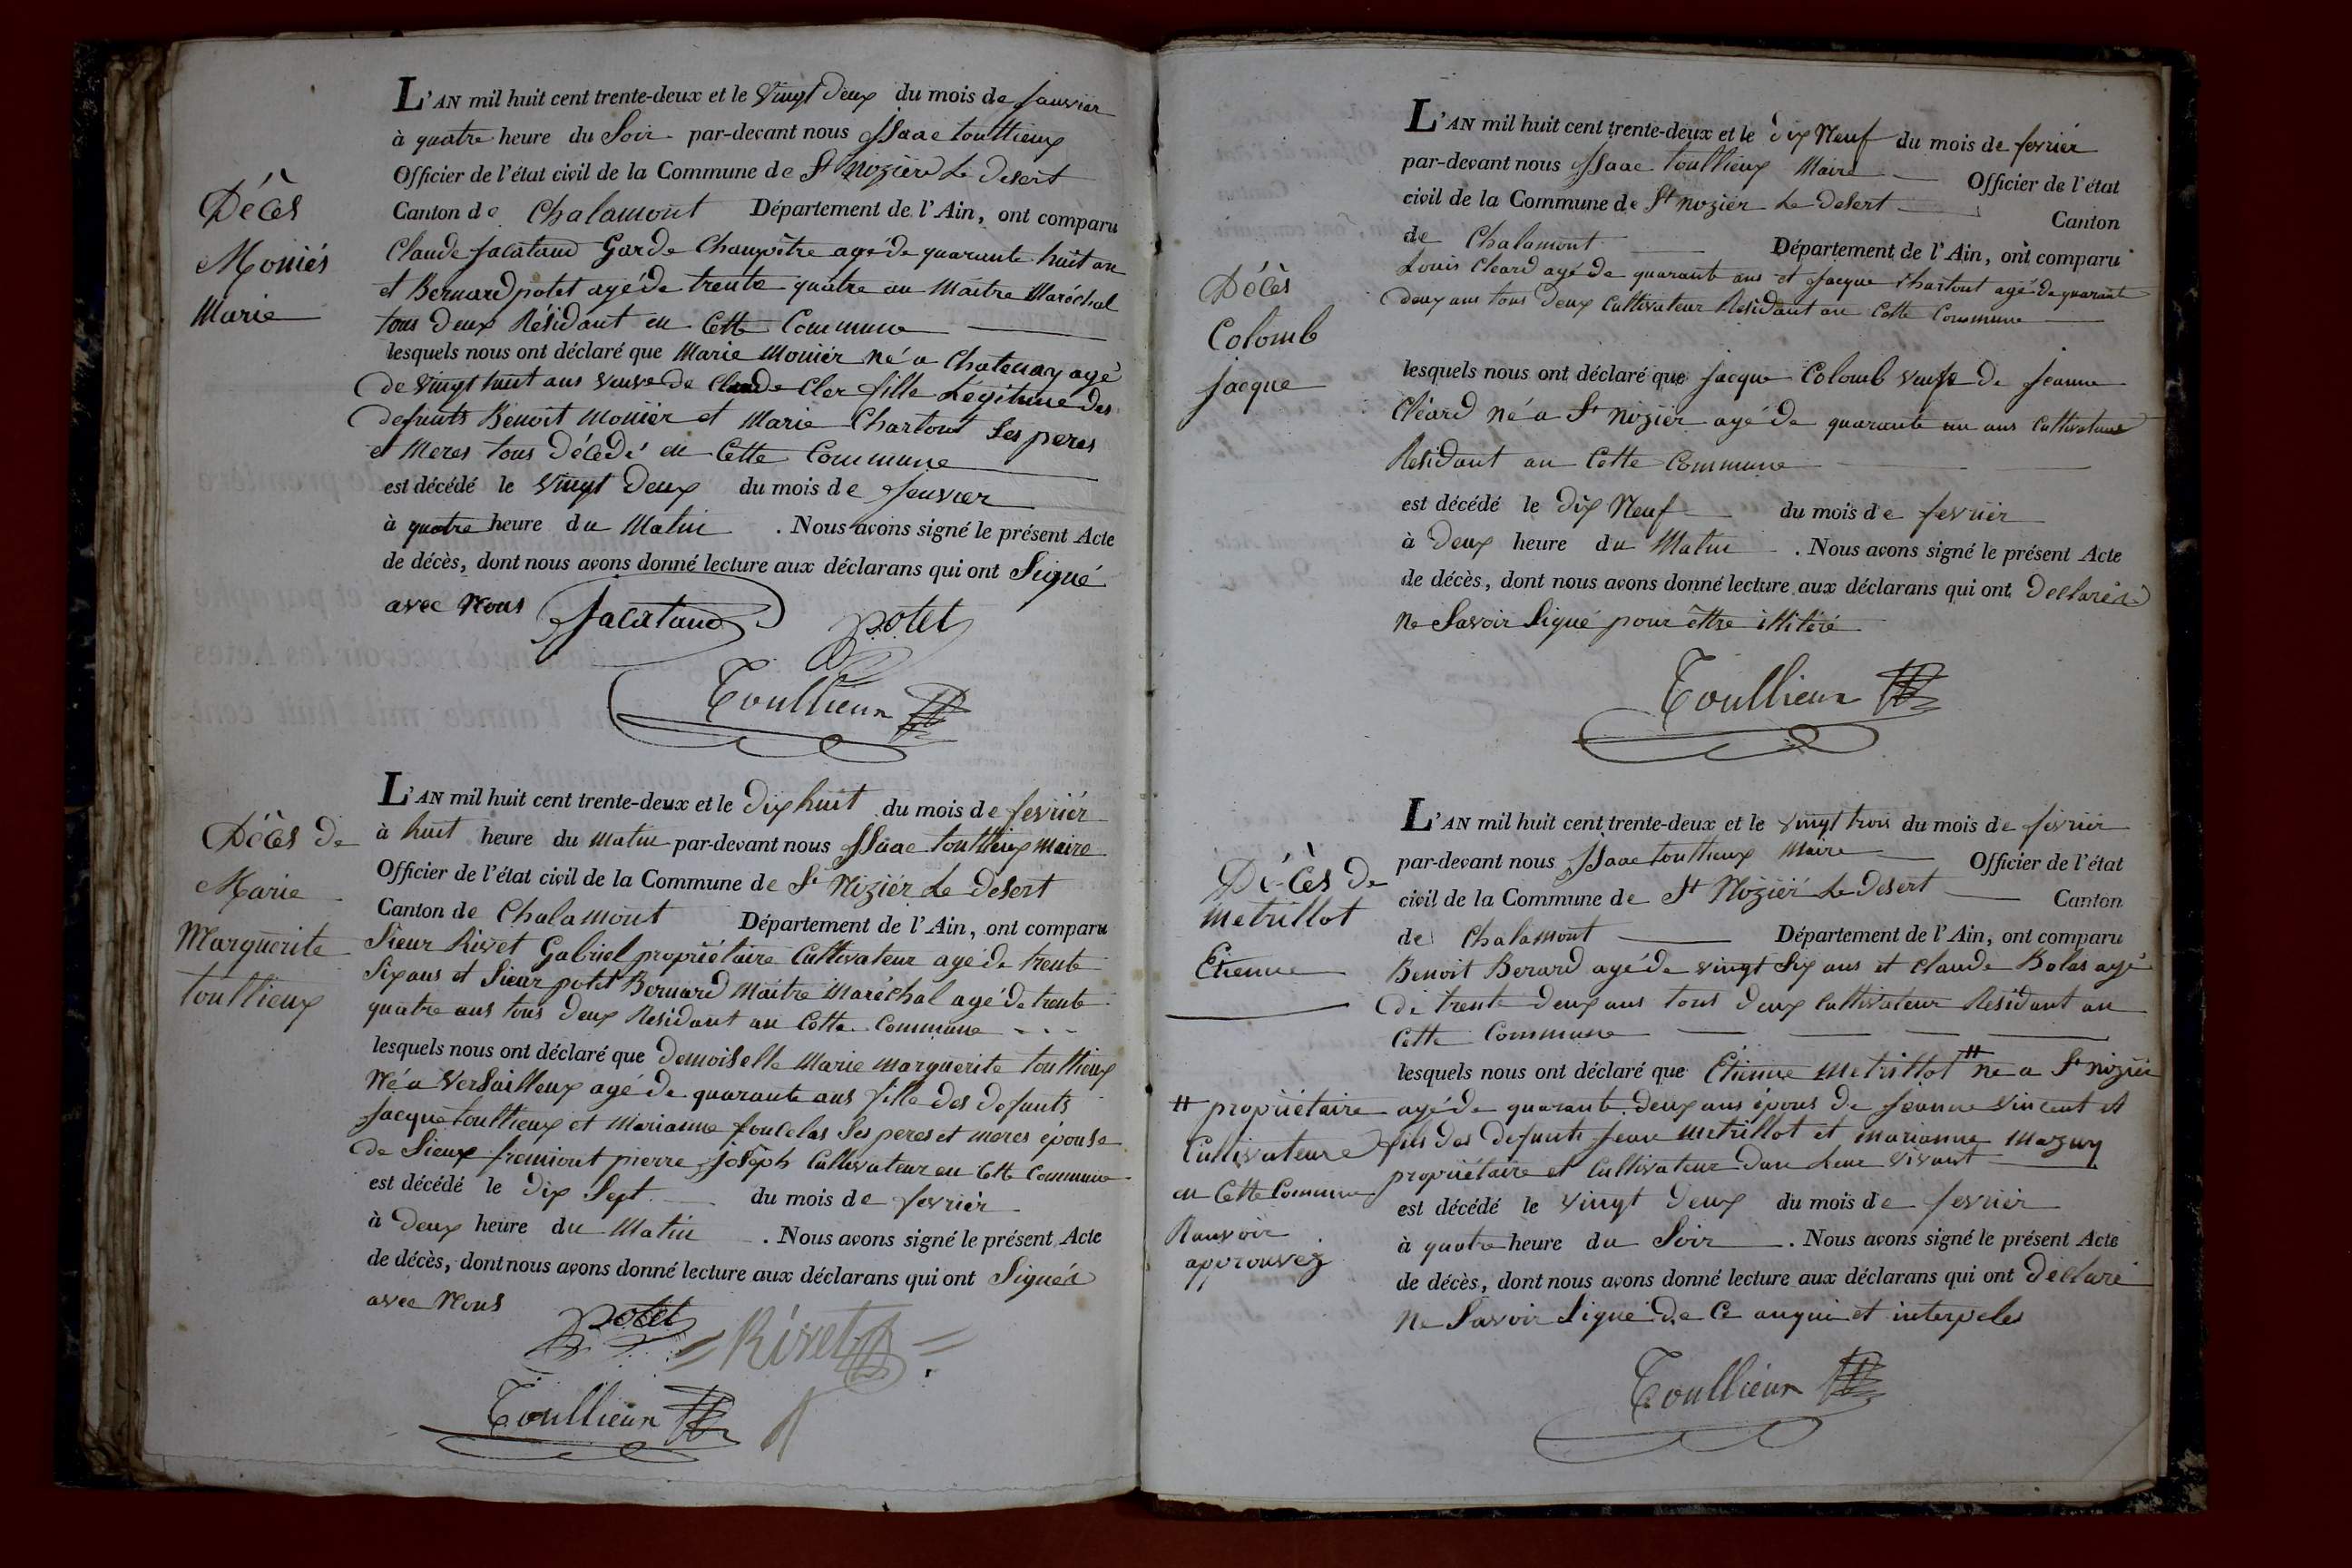 Décès
Moniés
Marie
L'AN mil huit cent trente-deux et le Vingt deux du mois de Janvier
à quatre heure du Soir par-devant nous Isaac touttieux
Officier de l'état civil de la Commune de St Nizièr Le Desert
Canton de Chalamont Département de l'Ain, ont comparu
Claude Jacataud Garde Champêtre agé de quarante huit an
et Bernard potet agé de trente quatre an Maitre Maréchal
tous deux Résidant en Cette Commune
lesquels nous ont déclaré que Marie Moniér né a Chatenay agé
de Vingt huit ans veuve de Claude Cler fille Légitime des
defunts Benoit Moniér et Marie Chartout Ses peres
et Meres tous Décedé en Cette Commune
est décédé le Vingt Deux du mois de Jenvier
à quatre heure du Matin . Nous avons signé le présent Acte
de décès, dont nous avons donné lecture aux déclarans qui ont Signé
avec Nous Jacataud potet
Toullieux
Décès de
Marie
Marguerite
touttieux
L'AN mil huit cent trente-deux et le Dix huit du mois de fevriér
à huit heure du Matin par-devant nous Isaac touttieux Maire
Officier de l'état civil de la Commune de St Niziér Le Desert
Canton de Chalamont Département de l'Ain, ont comparu
Sieur Rivet Gabriel propriétaire Cultivateur agé de trente
Six ans et Sieur potet Bernard Maitre Maréchal agé de trente
quatre ans tous Deux Residant an Cette Commune
lesquels nous ont déclaré que Demoiselle Marie Marguerite touttieux
Né a Versailleux agé de quarante ans fille des Defunts
Jacque touttieux et Marianne foucelas Ses peres et meres épouse
de Sieur fremiont pierre Joseph Cultivateur en Cette Commune
est décédé le Dix Sept du mois de fevrier
à Deux heure du Matin . Nous avons signé le présent Acte
de décès, dont nous avons donné lecture aux déclarans qui ont Signés
avec Nous potet Rivet
Toullieux
Décès
Colomb
Jacque
L'AN mil huit cent trente-deux et le Dix Neuf du mois de fevrier
par-devant nous Isaac touttieux Maire Officier de l'état
civil de la Commune de St Niziér Le Desert Canton
de Chalamont Département de l'Ain, ont comparu
Louis Cleard agé de quarante ans et Jacque Chartout agé de quarante
deux ans tous Deux Cultivateur Residant an Cette Commune
lesquels nous ont déclaré que Jacque Colomb veufe de Jeanne
Cléard né a St Nizier agé de quarante un ans Cultivateur
Residant an Cette Commune
est décédé le Dix Neuf du mois de fevrier
à Deux heure du Matin . Nous avons signé le présent Acte
de décès, dont nous avons donné lecture aux déclarans qui ont Declarés
Ne Savoir Signé pour êttre illitéré
Toullieux
Décès de
Metrillot
Etienne
L'AN mil huit cent trente-deux et le Vingt trois du mois de fevrier
par-devant nous Isaac touttieux Maire Officier de l'état
civil de la Commune de St Niziér Le Desert Canton
de Chalamont Département de l'Ain, ont comparu
Benoit Berard agé de vingt Six ans et Claude Bolas agé
de trente Deux ans tous Deux Cultivateur Residant an
Cette Commune
lesquels nous ont déclaré que Etienne Metrillot # né a St Nizier
agé de quarante Deux ans épous de Jeanne Vincent et
fils des Defunts Jean Metrillot et Marianne Mazuy
propriétaire et Cultivateur Dan Leur Vivant
# propriétaire
Cultivateure
en Cette Commune
Ranvoir
approuvez
est décédé le Vingt Deux du mois de fevrier
à quatre heure du Soir . Nous avons signé le présent Acte
de décès, dont nous avons donné lecture aux déclarans qui ont Déclaré
Ne Savoir Signé De Ce anquie et interpeles
Toullieux